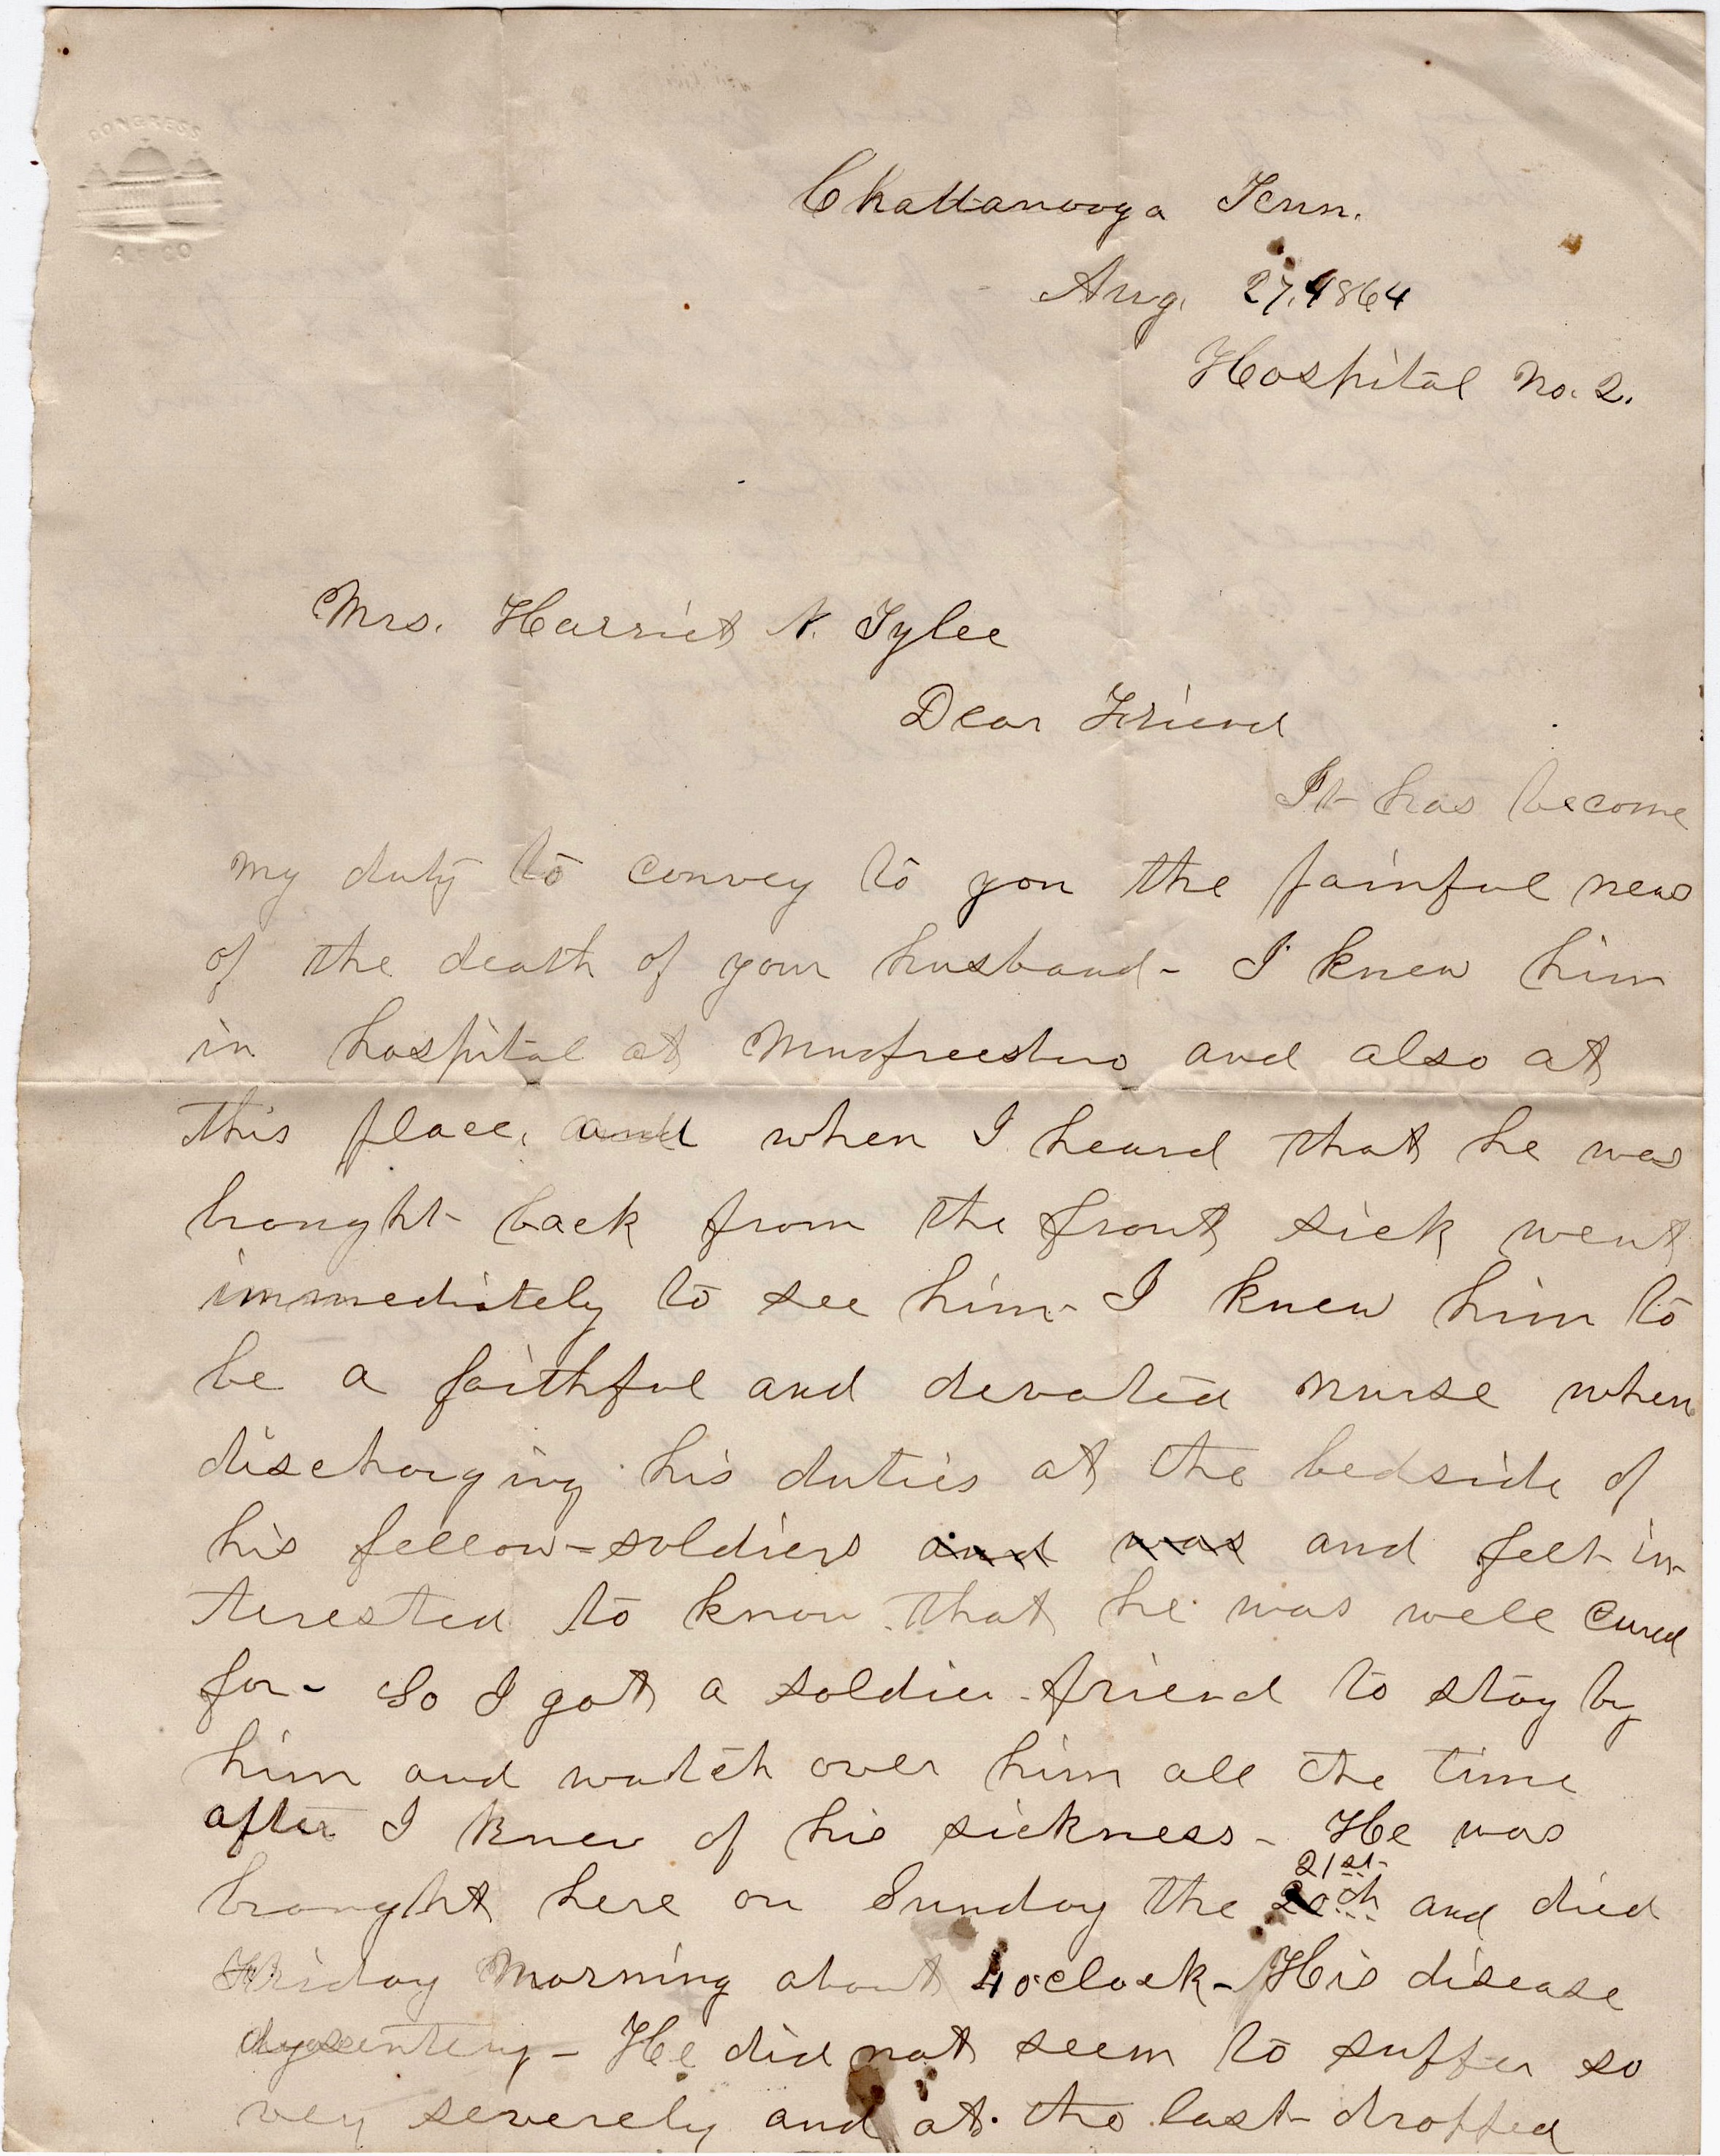 CONGRESS
Chattanooga Tenn.
Aug. 27, 1864
Hospital No. 2.
Mrs. Harriet N. Tylee
Dear Friend
It has become
my duty to convey to you the painful news
of the death of your husband - I knew him
in hospital at Murfreesboro and also at
this place, and when I heard that he was
brought back from the front sick went
immediately to see him - I knew him to
be a faithful and devoted nurse when
discharging his duties at the bedside of
his fellow-soldiers and was and felt in-
terested to know that he was well cared
for - So I got a soldier friend to stay by
him and watch over him all the time
after I knew of his sickness - He was
21st
brought here on Sunday the 20th and died
Friday Morning about 4 o'clock - His disease
dysentery - He did not seem to suffer so
very severely and at the last dropped